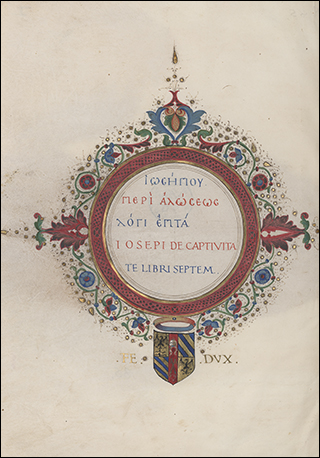 Ἰωσήπου
περὶ ἁλώσεως
λόγι ἑπτά
IOSEPI DE CAPTIVITA
TE LIBRI SEPTEM.
FE DVX.